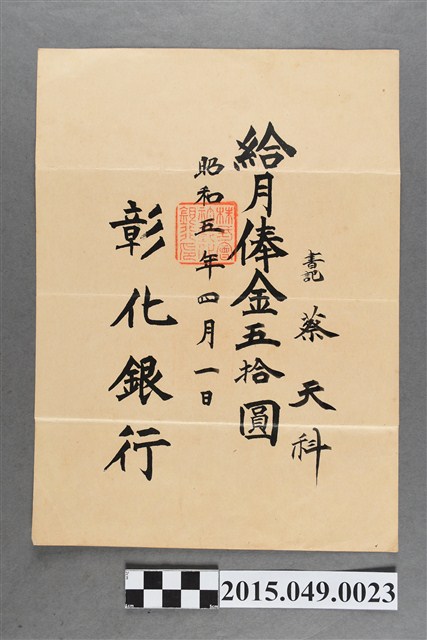 書記
蔡天科
給月俸金五拾圓
昭和五年四月一日
彰化銀行
2015.049.0023